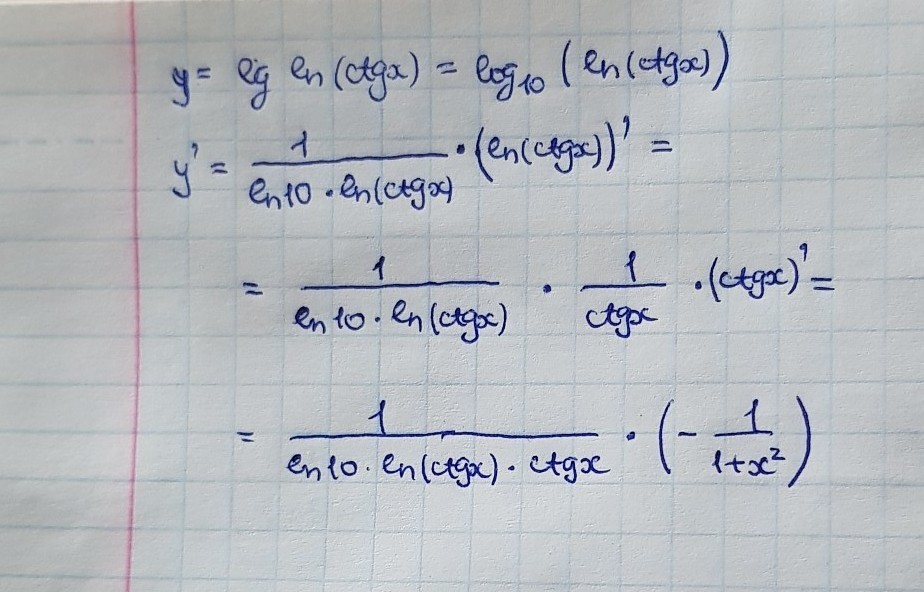 y = lg ln(ctgx) = log₁₀(ln(ctgx))
y' = 1/(ln10 · ln(ctgx)) · (ln(ctgx))' =
= 1/(ln10 · ln(ctgx)) · 1/ctgx · (ctgx)' =
= 1/(ln10 · ln(ctgx) · ctgx) · (- 1/(1+x²))